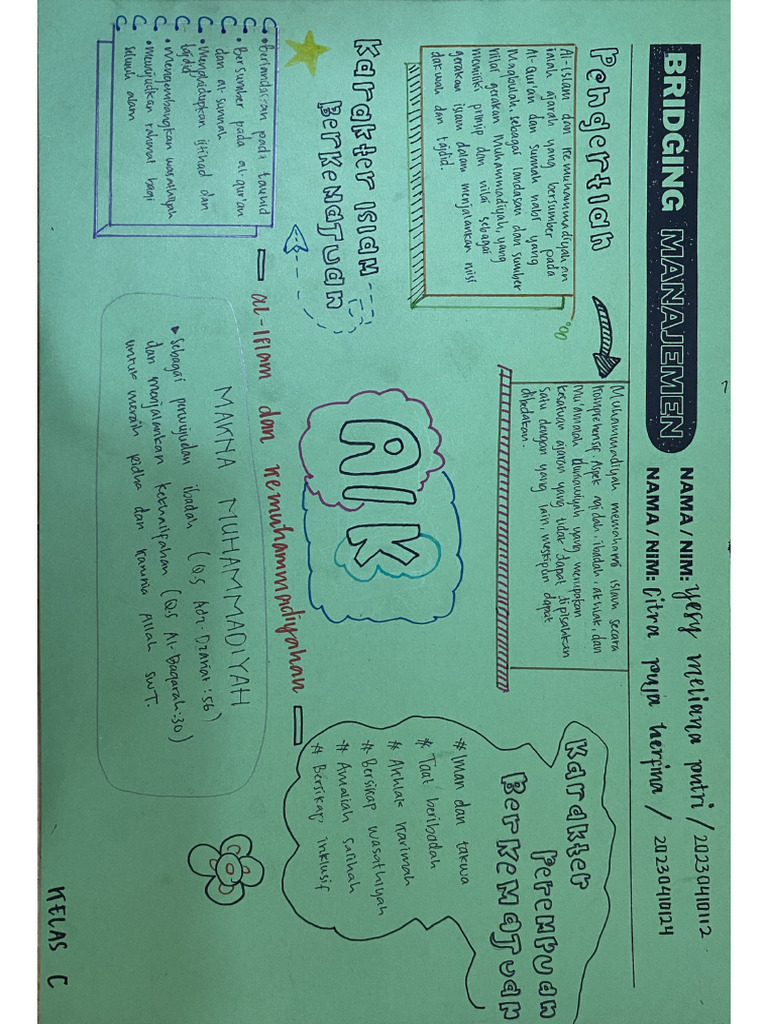 BRIDGING MANAJEMEN
NAMA/NIM: yesy meliana putri / 20230410112
NAMA/NIM: Citra puja herfina / 20230410124
Pengertian
Al-Islam dan Kemuhammadiyahan
ialah ajaran yang bersumber pada
Al-Qur'an dan sunnah nabi yang
Maqbulah, sebagai landasan dan sumber
nilai gerakan Muhammadiyah, yang
memiliki prinsip dan nilai sebagai
gerakan islam dalam menjalankan misi
dakwah dan tajdid.
Muhammadiyah memahami islam secara
komprehensif. Aspek aqidah, ibadah, akhlak, dan
mu'amalah dunyawiyah yang merupakan
kesatuan ajaran yang tidak dapat dipisahkan
satu dengan yang lain, meskipun dapat
dibedakan.
Karakter Perempuan
Berkemajuan
# Iman dan takwa
# Taat beribadah
# Akhlak karimah
# Bersikap wasathiyah
# Amaliah salihah
# Bersikap inklusif
Karakter Islam
Berkemajuan
• Berlandaskan pada tauhid
• Bersumber pada al-qur'an
dan al-sunnah
• Menghidupkan ijtihad dan
tajdid
• mengembangkan wasathiyah
• mewujudkan rahmat bagi
seluruh alam
AIK
al-Islam dan kemuhammadiyahan
MAKNA MUHAMMADIYAH
• Sebagai perwujudan ibadah (QS Adz-Dzariat:56)
dan menjalankan kekhalifahan (QS Al-Baqarah:30)
untuk meraih ridha dan karunia Allah SWT.
KELAS C